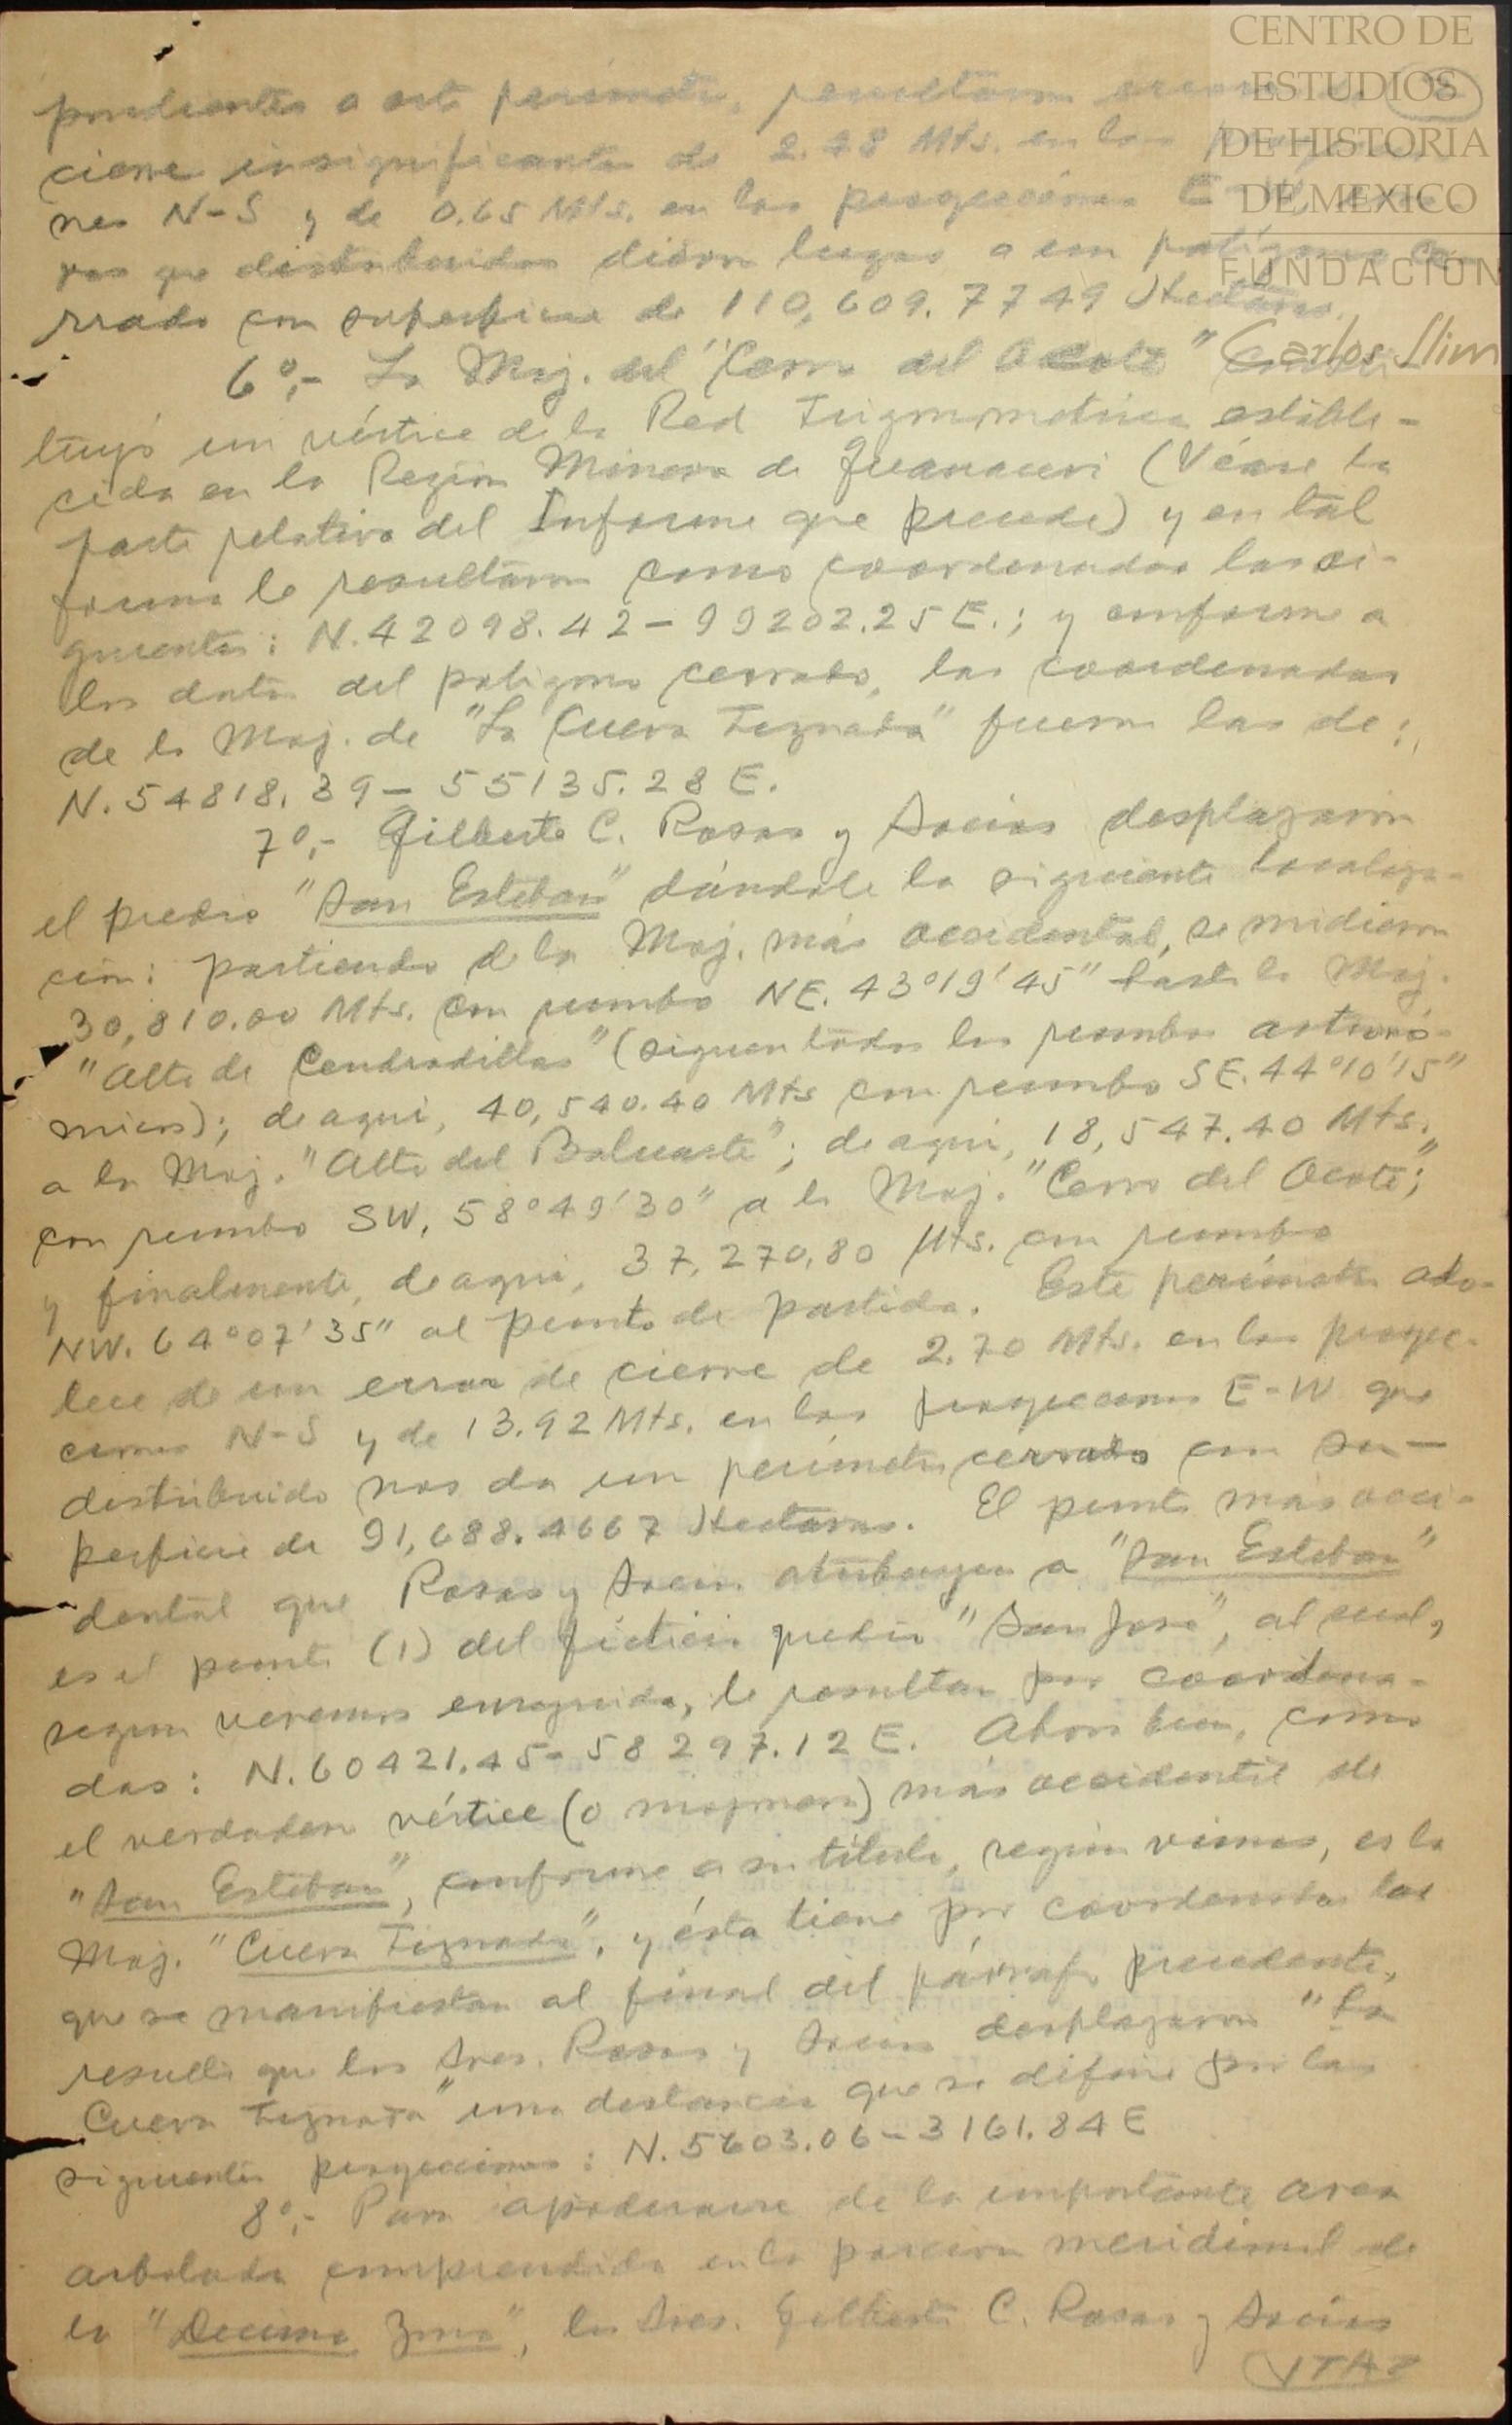 CENTRO DE
ESTUDIOS
DE HISTORIA
DE MEXICO
FUNDACION
Carlos Slim
pondientes a este perímetro, resultaron
cierre insignificantes de 2.48 Mts. en las
nes N-S y de 0.65 Mts. en las proyecciones E-W,
res que distribuidos dieron lugar a un polígono ce-
rrado con superficie de 110,609.7749 Hectáreas.
6º,- La Moj. del "Cerro del Ocote"
tuyó un vértice de la Red Trigonométrica estable-
cida en la Región Minera de Guanaceví (Véase la
parte relativa del Informe que precede) y en tal
forma le resultaron como coordenadas las si-
guientes: N.42098.42-99202.25E.; y conforme a
los datos del polígono cerrado, las coordenadas
de la Moj. de "La Cueva Tiznada" fueron las de:
N.54818.39-55135.28 E.
7º,- Gilberto C. Rosas y Socios desplazaron
el predio "San Esteban" dándole la siguiente localiza-
ción: partiendo de la Moj. más occidental, se midieron
30,810.00 Mts. con rumbo NE.43º19'45" hasta la Moj.
"Alto de Cendradillas" (siguen todos los rumbos astronó-
micos); de aquí, 40,540.40 Mts con rumbo SE.44º10'15"
a la Moj. "Alto del Baluarte"; de aquí, 18,547.40 Mts.,
con rumbo SW. 58º49'30" a la Moj. "Cerro del Ocote";
y finalmente, de aquí, 37,270.80 Mts. con rumbo
NW.64º07'35" al punto de partida. Este perímetro ado-
lece de un error de cierre de 2.70 Mts. en las proyec-
ciones N-S y de 13.92 Mts. en las proyecciones E-W que
distribuido nos da un perímetro cerrado con su-
perficie de 91,688.4667 Hectáreas. El punto más occi-
dental que Rosas y Socios atribuyen a "San Esteban"
es el punto (1) del ficticio predio "San José", al cual,
según veremos enseguida, le resultan por coordena-
das: N.60421.45-58297.12 E. Ahora bien, como
el verdadero vértice (o mojonera) más occidental de
"San Esteban", conforme a su título, según vimos, es la
Moj. "Cueva Tiznada", y ésta tiene por coordenadas las
que se manifiestan al final del párrafo precedente,
resulta que los Sres. Rosas y Socios desplazaron "La
Cueva Tiznada" una distancia que se define por las
siguientes proyecciones: N.5603.06-3161.84 E
8º,- Para apoderarse de la importante área
arbolada comprendida en la porción meridional de
la "Decima Zona", los Sres. Gilberto C. Rosas y Socios